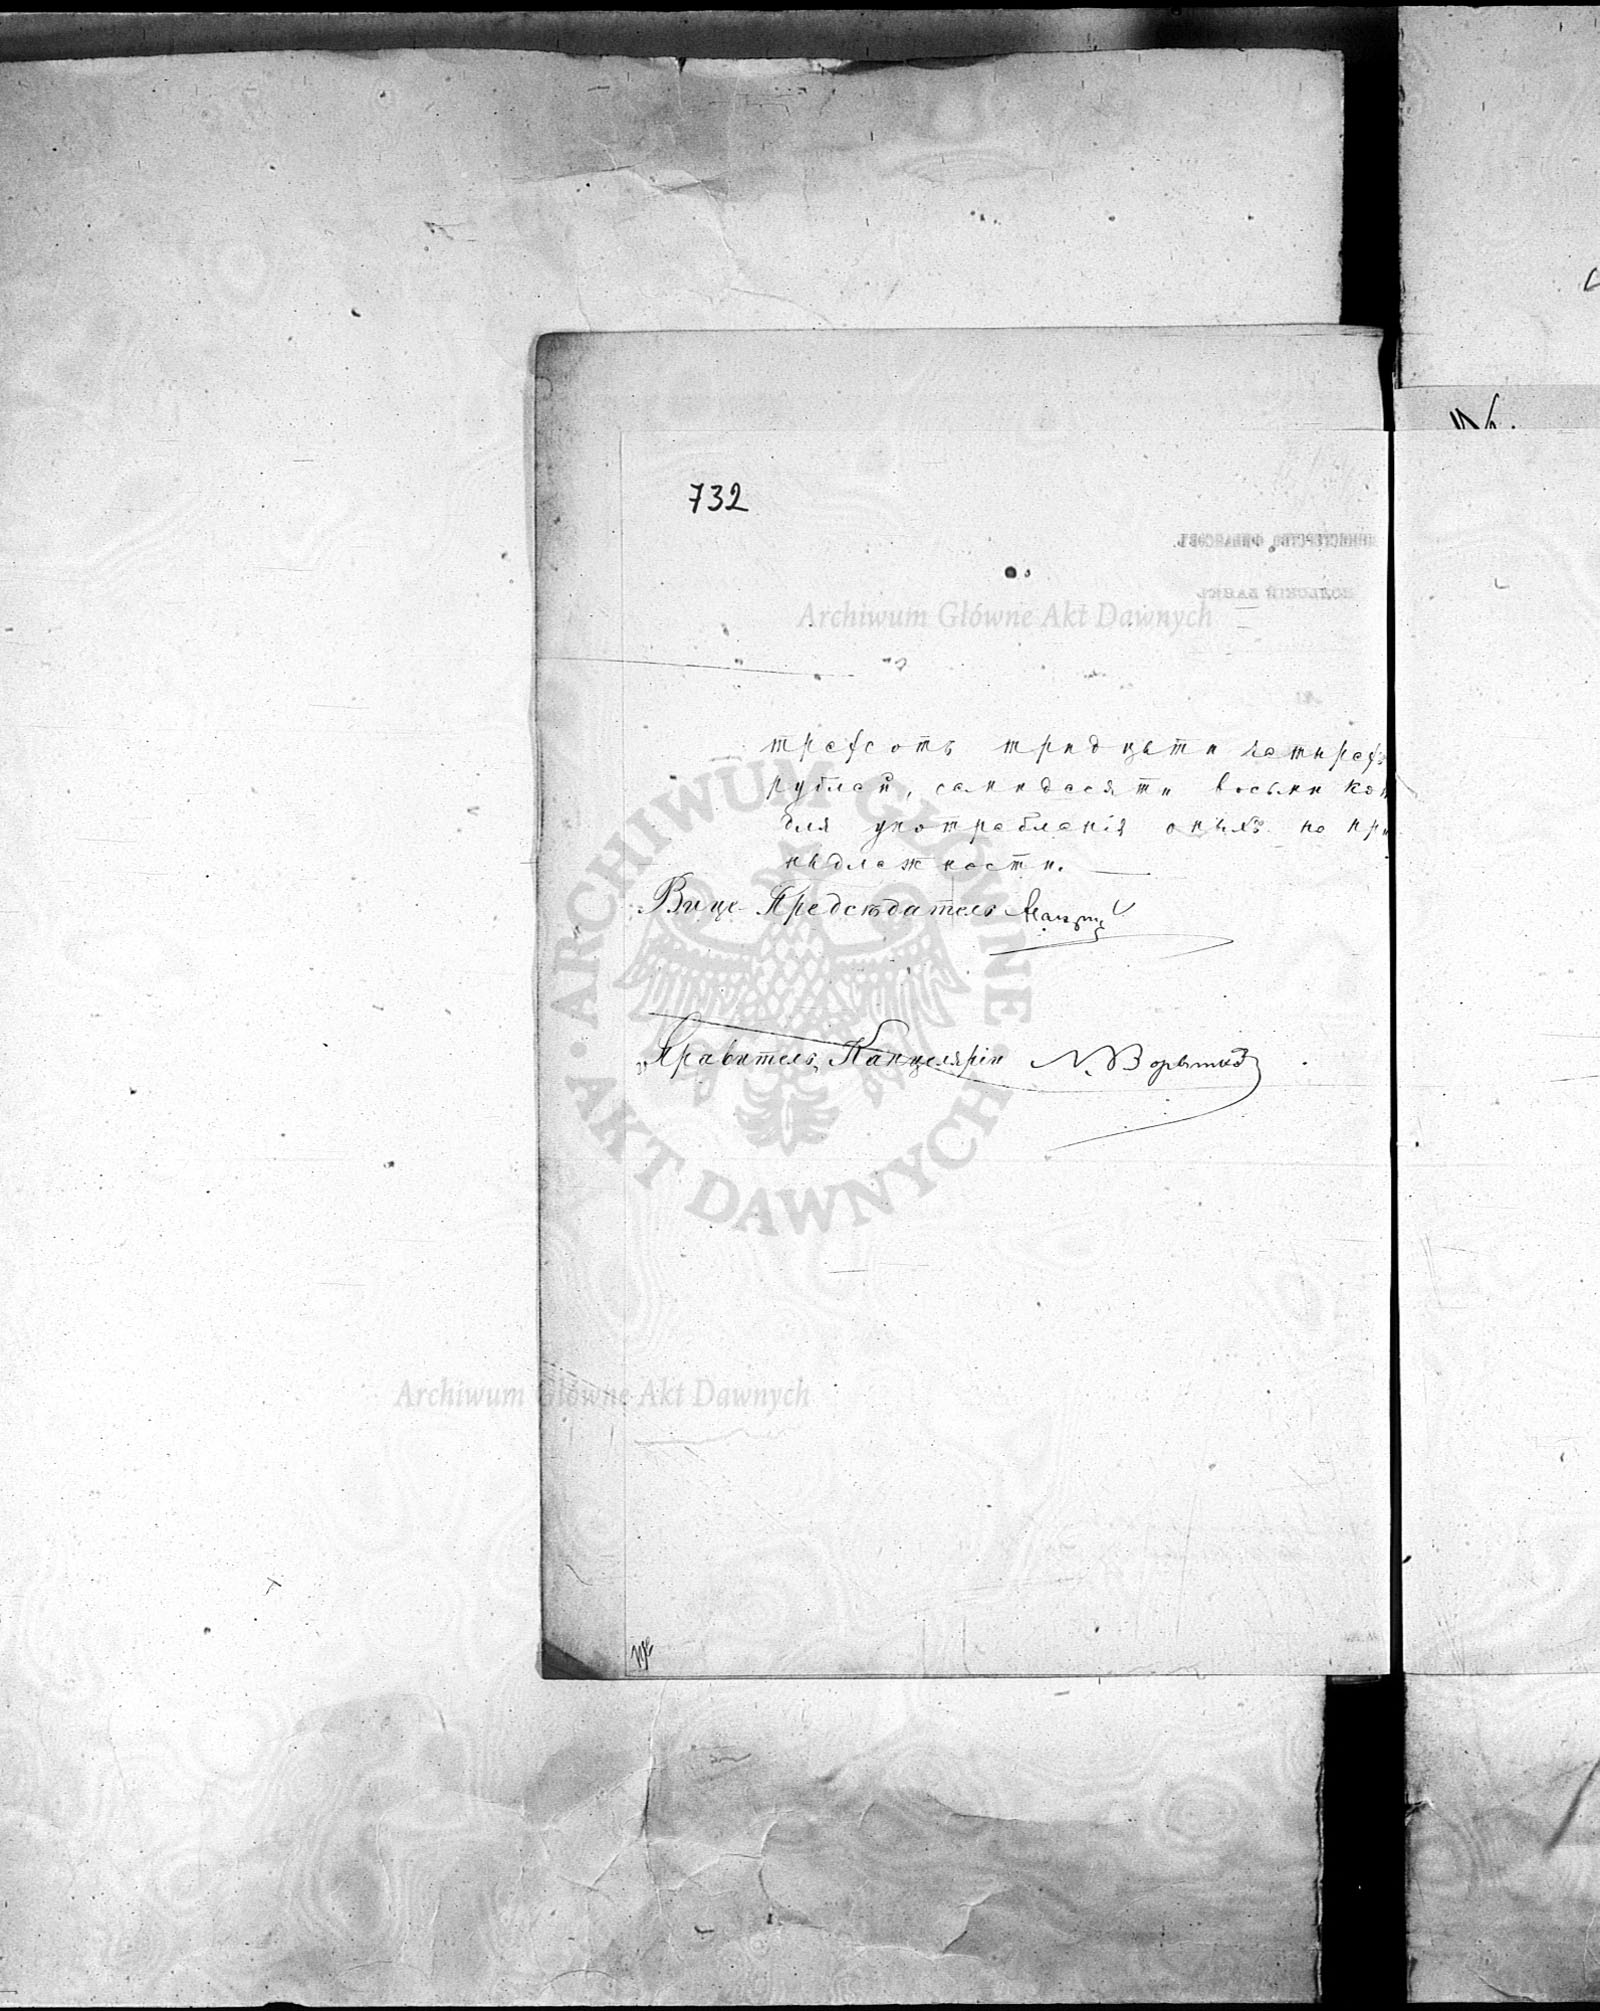 732
МИНИСТЕРСТВО ФИНАНСОВЪ.
ПОЛЬСКІЙ БАНКЪ
Archiwum Główne Akt Dawnych
трехсотъ тридцати четырехъ
рублей, семидесяти восьми коп
для употребленія оныхъ по при
надлежности.
Вице-Председатель
Правитель Канцеляріи
ARCHIWUM GŁÓWNE
AKT DAWNYCH
Archiwum Główne Akt Dawnych